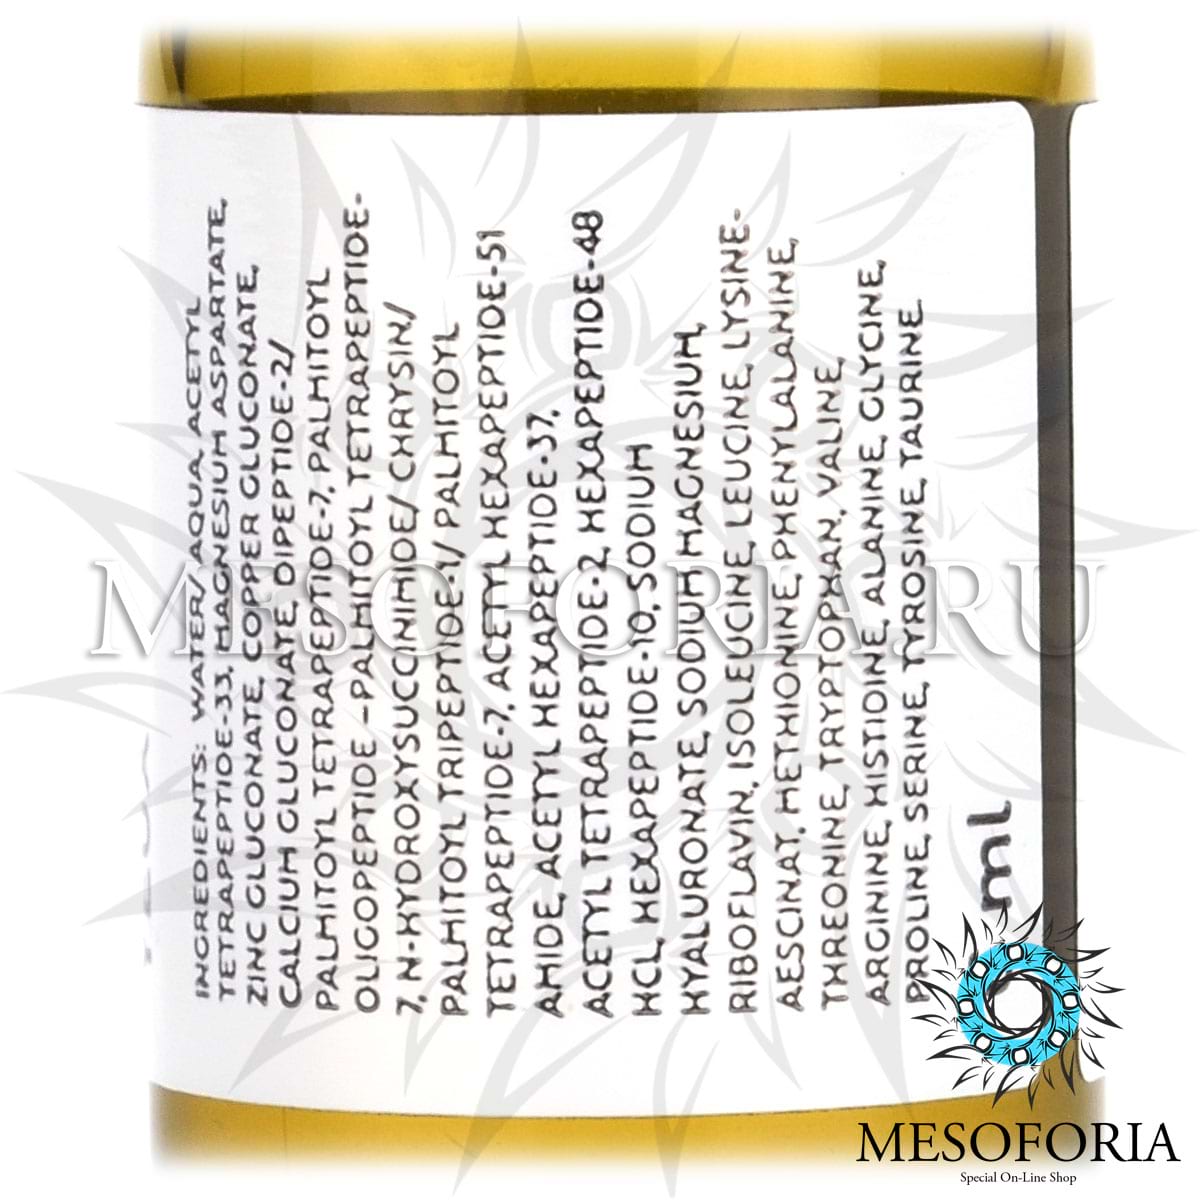 INGREDIENTS: WATER/AQUA, ACETYL
TETRAPEPTIDE-33, MAGNESIUM ASPARTATE,
ZINC GLUCONATE, COPPER GLUCONATE,
CALCIUM GLUCONATE, DIPEPTIDE-2/
PALMITOYL TETRAPEPTIDE-7, PALMITOYL
OLIGOPEPTIDE –PALMITOYL TETRAPEPTIDE-
7, N-HYDROXYSUCCINIMIDE/ CHRYSIN/
PALMITOYL TRIPEPTIDE-1/ PALMITOYL
TETRAPEPTIDE-7, ACETYL HEXAPEPTIDE-51
AMIDE, ACETYL HEXAPEPTIDE-37,
ACETYL TETRAPEPTIDE-2, HEXAPEPTIDE-48
HCL, HEXAPEPTIDE-10, SODIUM
HYALURONATE, SODIUM MAGNESIUM,
RIBOFLAVIN, ISOLEUCINE, LEUCINE, LYSINE-
AESCINAT, METHIONINE, PHENYLALANINE,
THREONINE, TRYPTOPHAN, VALINE,
ARGININE, HISTIDINE, ALANINE, GLYCINE,
PROLINE, SERINE, TYROSINE, TAURINE.
ml
MESOFORIA.RU
MESOFORIA
Special On-Line Shop